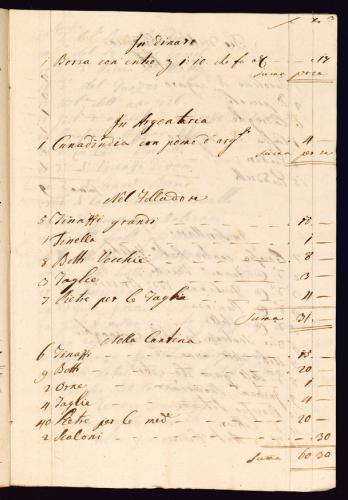 In dinaro
1 Borsa con entro 1:10 che fa - 17
Suma per se
In Argenteria
1 Cannadindia con pomo d'arg.to - 4 -
Suma per se
Nel Folladore
5 Tinazzi grandi - 15 -
1 Tinella - 1 -
8 Botti Vecchie - 8 -
3 Taglie - 3 -
7 Pietre per le Taglie - 4 -
Suma 31 -
Nella Cantina
6 Tinazzi - 15 -
9 Botti - 20 -
2 Orne - 1 -
4 Taglie - 4 -
40 Pietre per le med.e - 20 -
2 Scaloni - 30
Suma 60 30